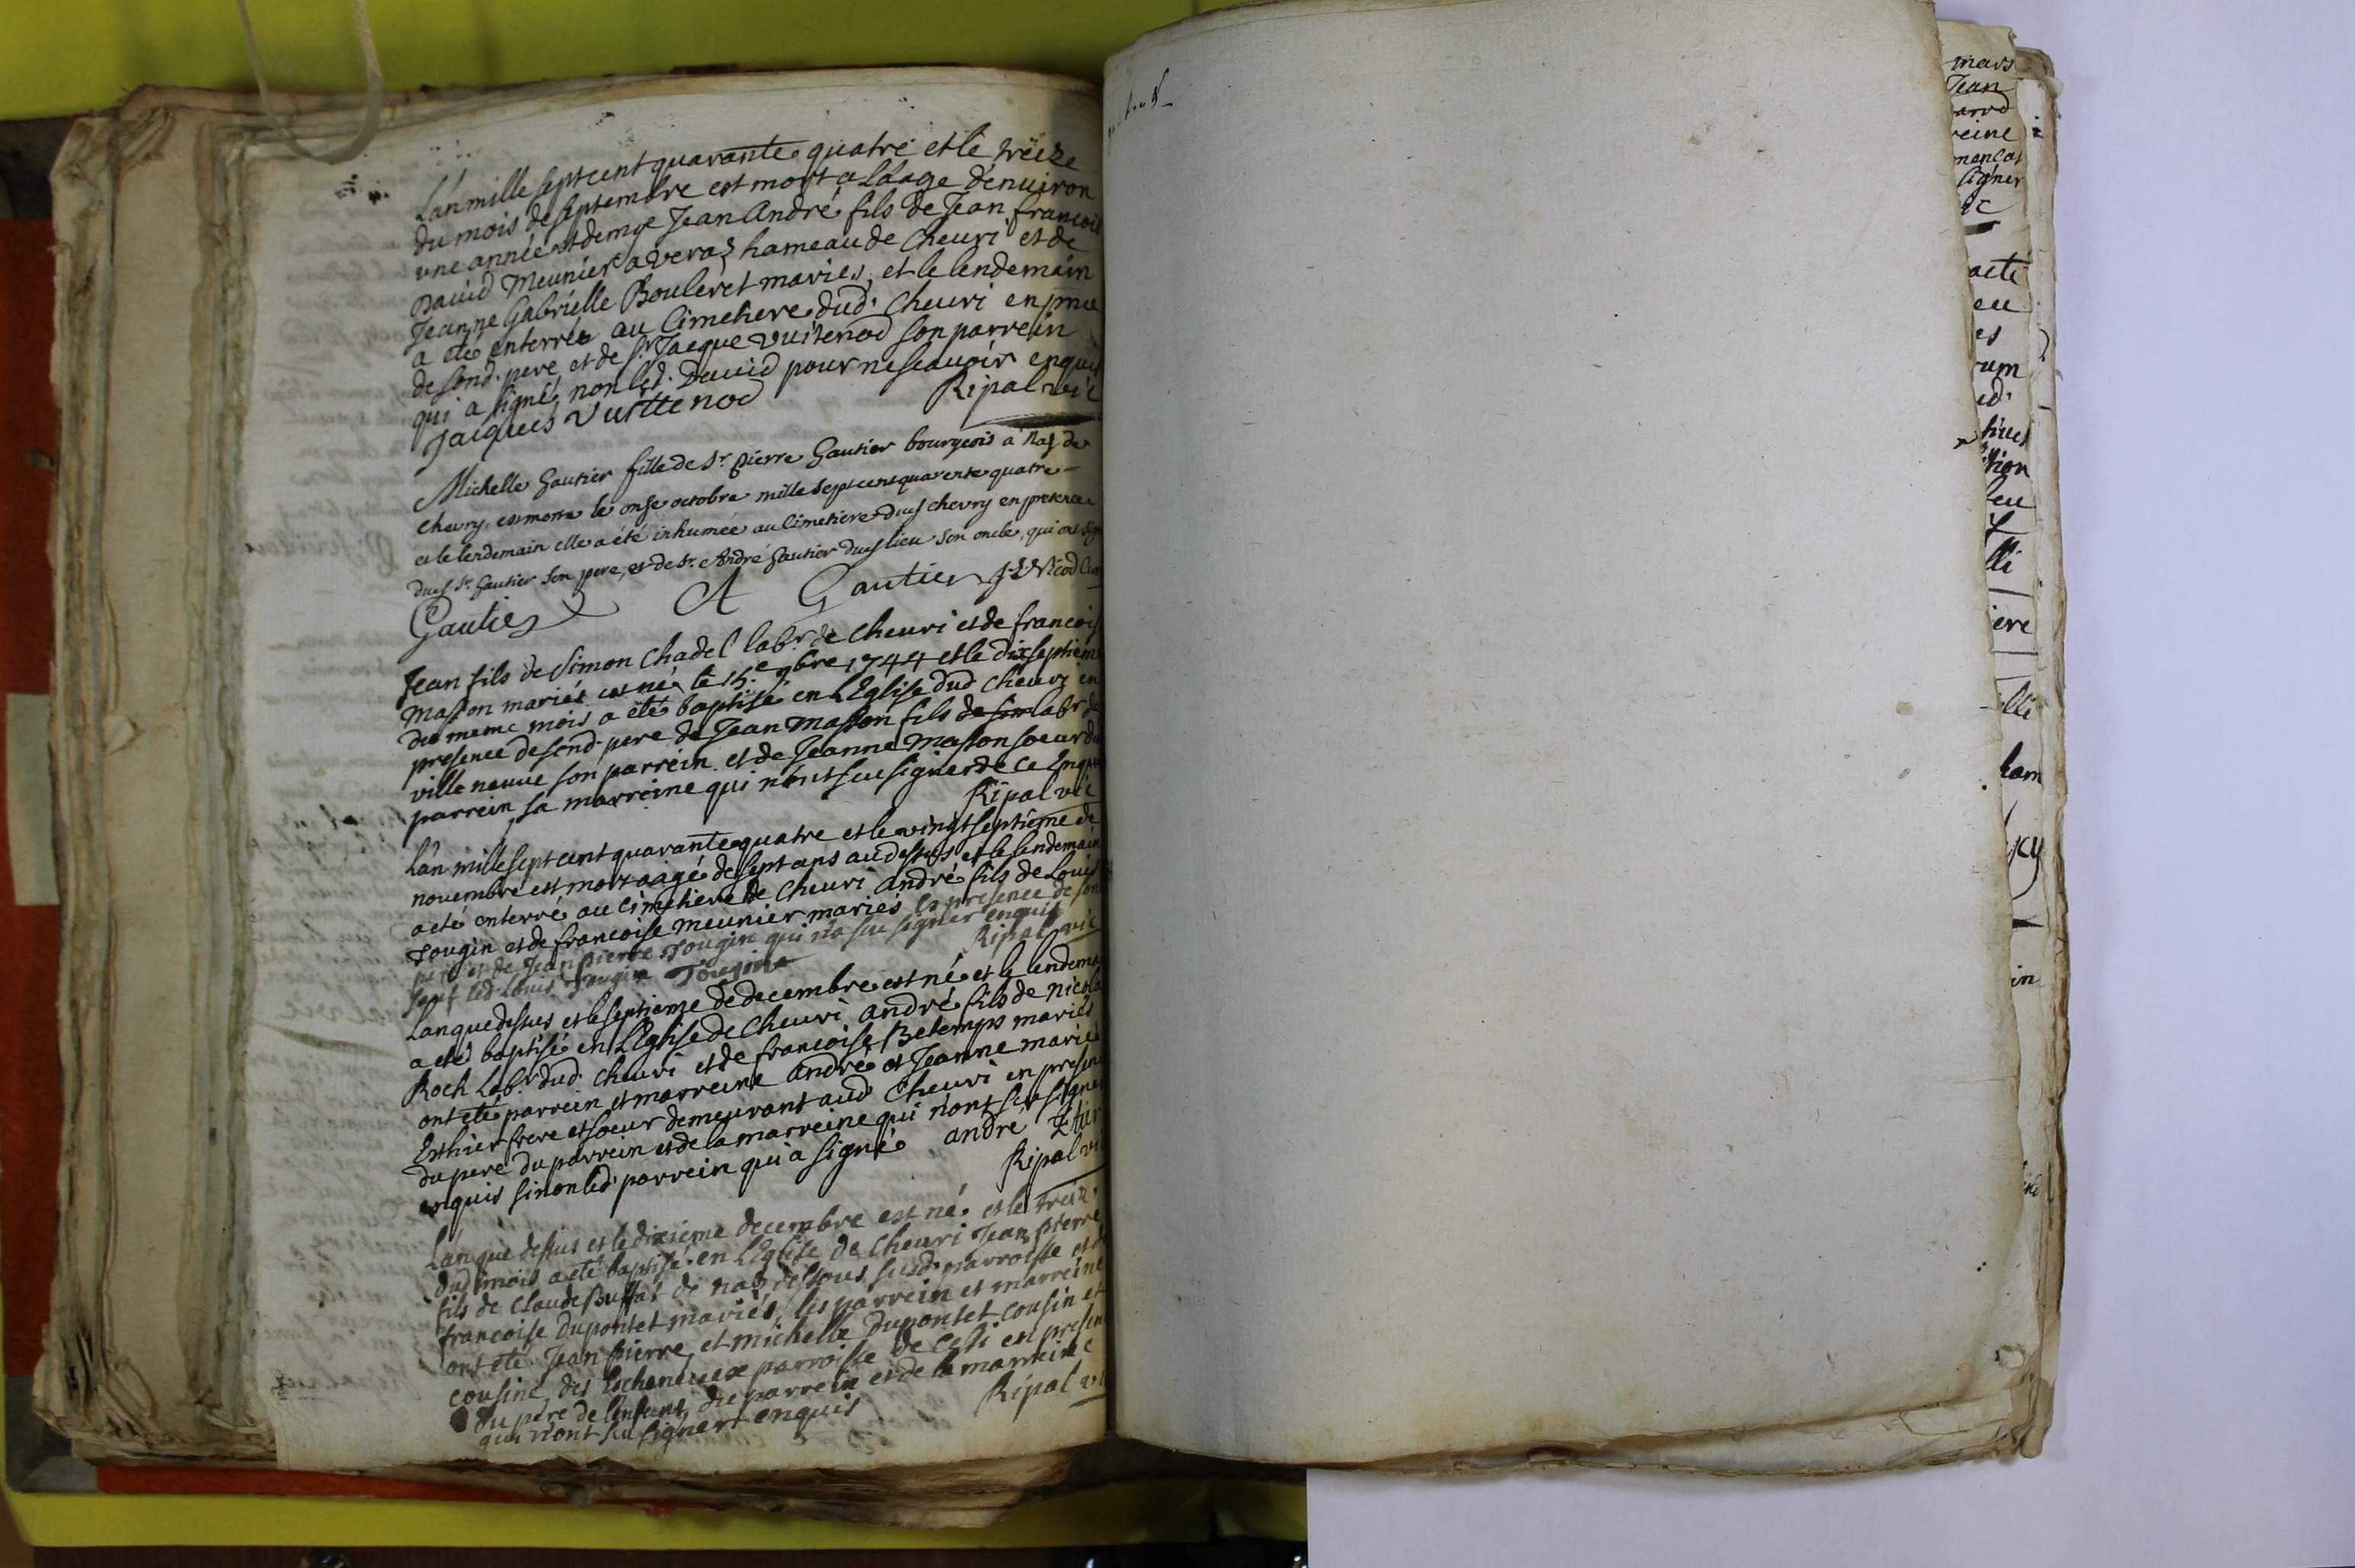 L'an mille sept cent quarante quatre et le treize
du mois de septembre est mort a laage d'enuiron
une année et demye Jean André fils de Jean francois
Dauid Meunier a veraz hameau de Cheuri et de
Jeanne Gabrielle Bouleret mariés, et le lendemain
a eté enterrée au Cimetiere dud. Cheuri en pnce
de sond. pere et de Sr. Jacque Vuitenod son parrein
qui a signé, non led. Dauid pour ne scauoir enquis
Jacques Vuittenod Ripal vic
Michelle Gautier fille de Sr. pierre Gautier bourgeois à Naz de
chevry, est morte le onze octobre mille sept cent quarente quatre
et le lendemain elle a été inhumée au Cimetiere duds chevry en presence
duds Sr. Gautier son pere, et de Sr. André Gautier duds lieu son oncle, qui ont signé
Gautier A Gautier
Jean fils de Simon Chadel labr. de Cheuri et de francois
Masson mariés est né le 15e 9bre 1744 et le dixseptieme
du meme mois a eté baptisé en L'Eglise dud Cheuri en
presence de sond. pere de Jean Masson fils de sim labr de
ville neuue son parrein et de Jeanne Masson soeur du
parrein sa marreine qui n'ont sceu signer de ce Enquis
Ripal vic
L'an mille sept cent quarante quatre et le vingt septieme de
nouembre est mort aagé de sept ans au dessus et le lendemain
a eté enterré au cimetiere de Cheuri André fils de Louis
Tougin et de francoise Meunier mariés En presence de son
pere et de Jean pierre Tougin qui n'a sceu signer enquis
sauf led. Louis Tougin Tougin Ripal vic
L'an que dessus et le septieme de decembre est né et le lendemain
a eté baptisé en L'Eglise de Cheuri André fils de Nicolas
Roch Labr. dud Cheuri et de francoise Betemps mariés
ont eté parrein et marreine André et Jeanne Marie
Esthier frere et soeur demeurant aud Cheuri en presence
du pere du parrein et de la marreine qui n'ont sceu signer
enquis sinon led. parrein qui a signé andré
Ripal vic
L'an que dessus et le dixieme decembre est né et le treize
dud mois a eté baptisé en L'Eglise de Cheuri Jean pierre
fils de Claude de naz dessous susd. parroisse et de
francoise Dupontet mariés, les parrein et marreine
ont eté Jean pierre et michelle Dupontet cousin et
cousine des parroisse de en presence
du pere de l'enfant du parrein et de la marreine
qui n'ont sceu signer enquis Ripal vic
mars
Jean
reine
signer